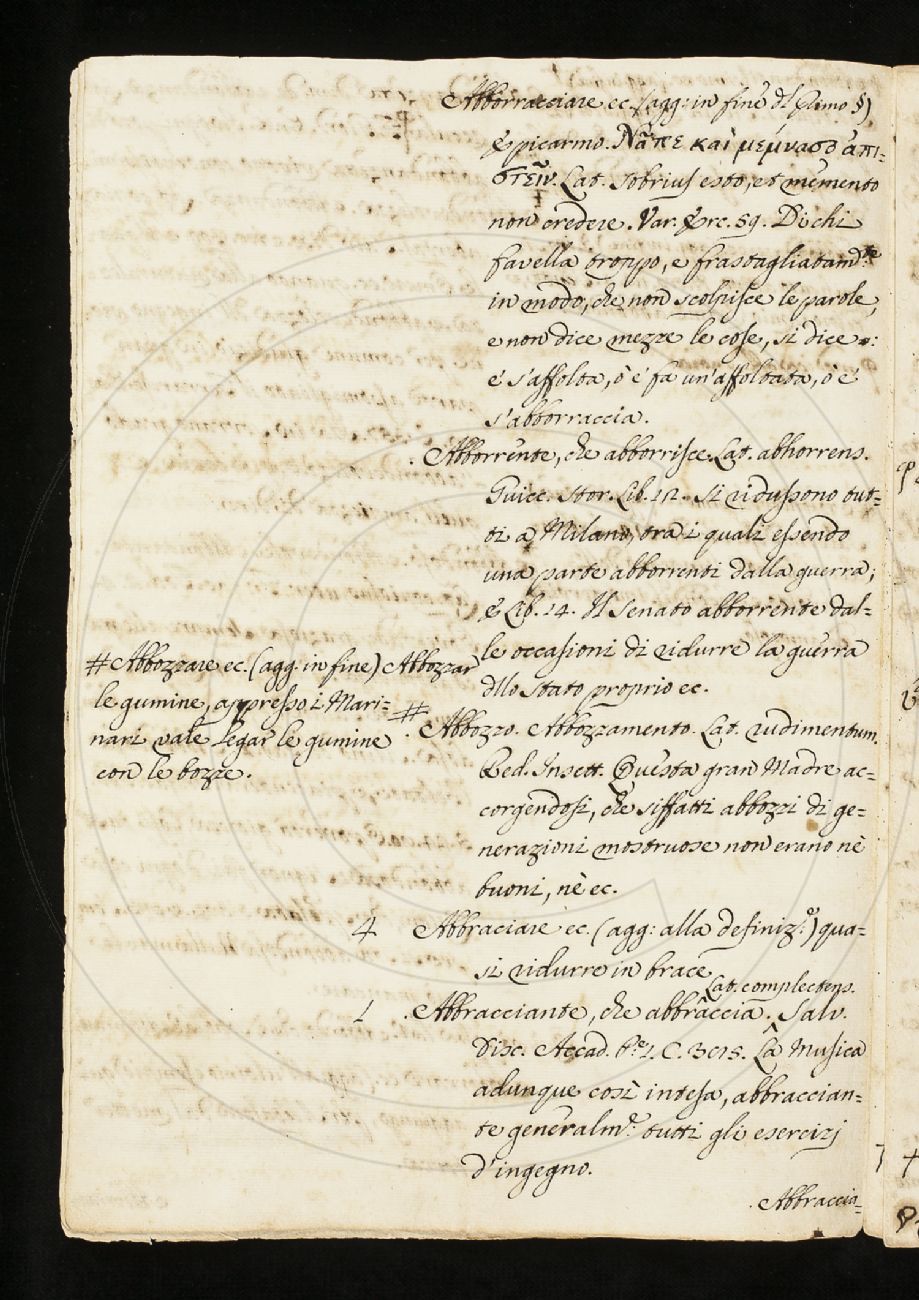 Abborracciare ec. (agg: in fine dl primo §)
Epicarmo. Νᾶπε καὶ μέμνασο ἀπι=
στεῖν. Lat. sobrius esto, et memento
non credere. Var. Erc. 59. Di chi
favella troppo, e frastagliatamte
in modo, che non scolpisce le parole,
e non dice mezze le cose, si dice :
e' s'affolta, ò e' fa un'affoltata, ò e'
s'abborraccia.
. Abborrente, che abborrisce. Lat. abhorrens.
Guicc. Stor. Lib. 12. Si ridussono tut=
ti a Milano, tra i quali essendo
una parte abborrenti dalla guerra;
E Lib. 14. Il Senato abborrente dal=
le occasioni di ridurre la guerra
dllo stato proprio ec.
# Abbozzare ec. (agg. in fine) Abbozzar
le gumine, appresso i Mari=
nari vale Legar le gumine
con le bozze.
# . Abbozzo. Abbozzamento. Lat. rudimentum.
Red. Insett. Questa gran Madre ac=
corgendosi, che siffatti abbozzi di ge=
nerazioni mostruose non erano nè
buoni, nè ec.
4 Abbraciare ec. (agg: alla definiz.e) qua=
si ridurre in brace
Lat. complectens.
1 . Abbracciante, che abbraccia. Salv.
Disc. Accad. Pe. 1. C. 3015. La Musica
adunque così intesa, abbraccian=
te generalme. tutti gli esercizj
d'ingegno.
. Abbraccia=